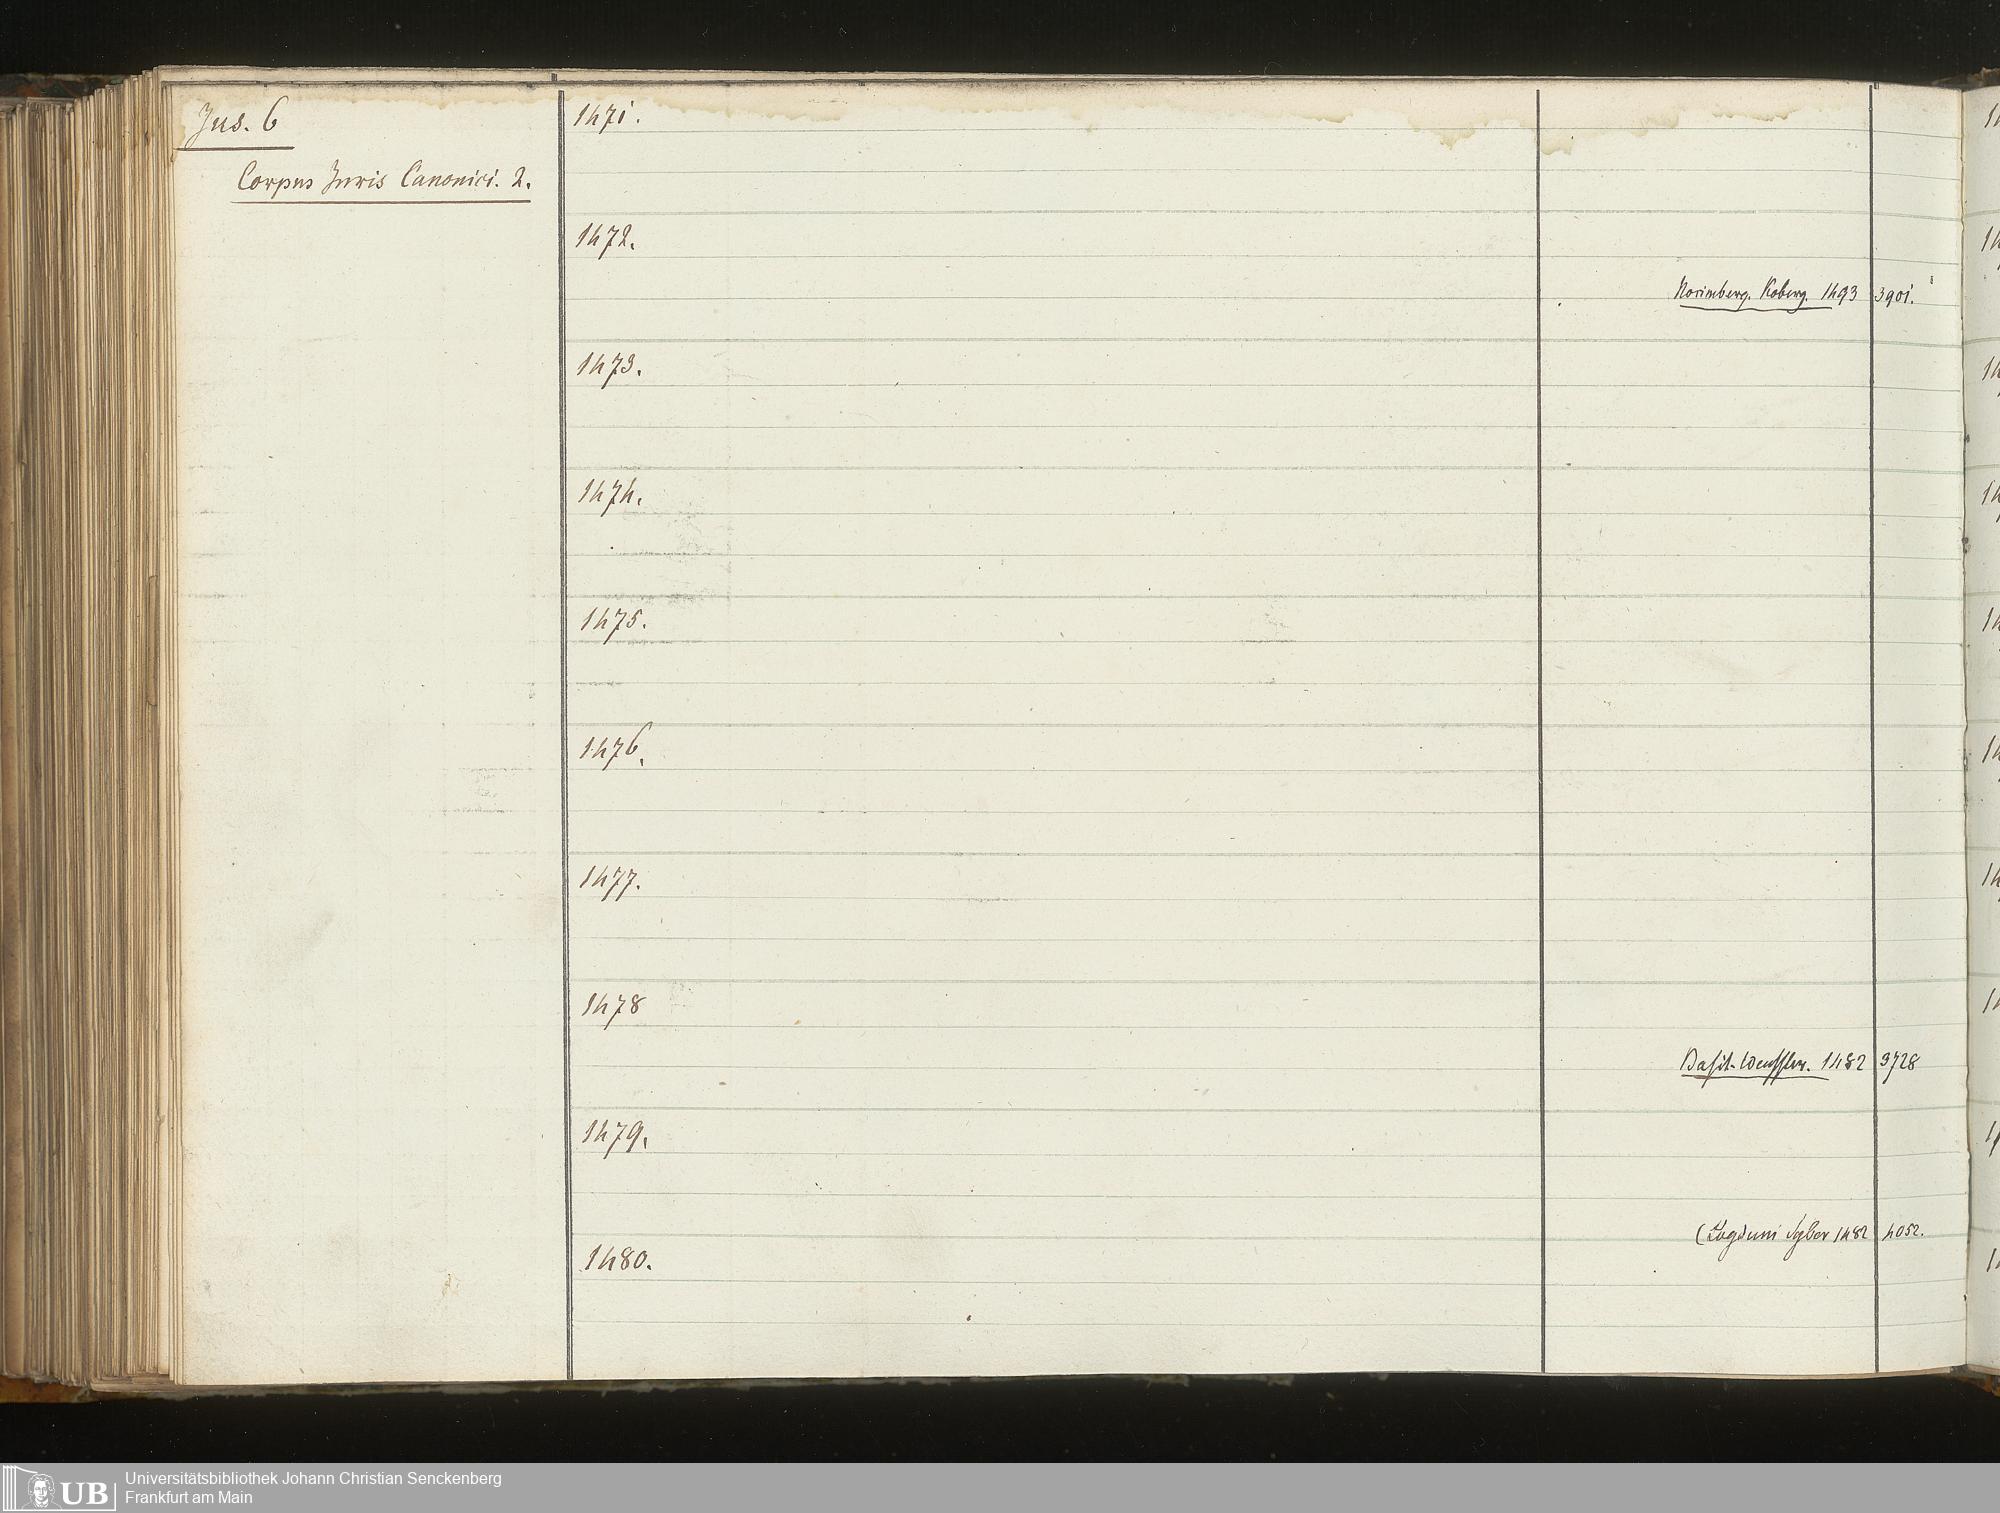 Jus. 6
Corpus Juris Canonici. 2.
1471.
1472.
Norimberg. Koberg. 1493 3901.
1473.
1474.
1475.
1476.
1477.
1478
Basil. Wenssler. 1482 3728
1479.
(Lugduni Syber 1482 4052.
1480.
UB
Universitätsbibliothek Johann Christian Senckenberg
Frankfurt am Main